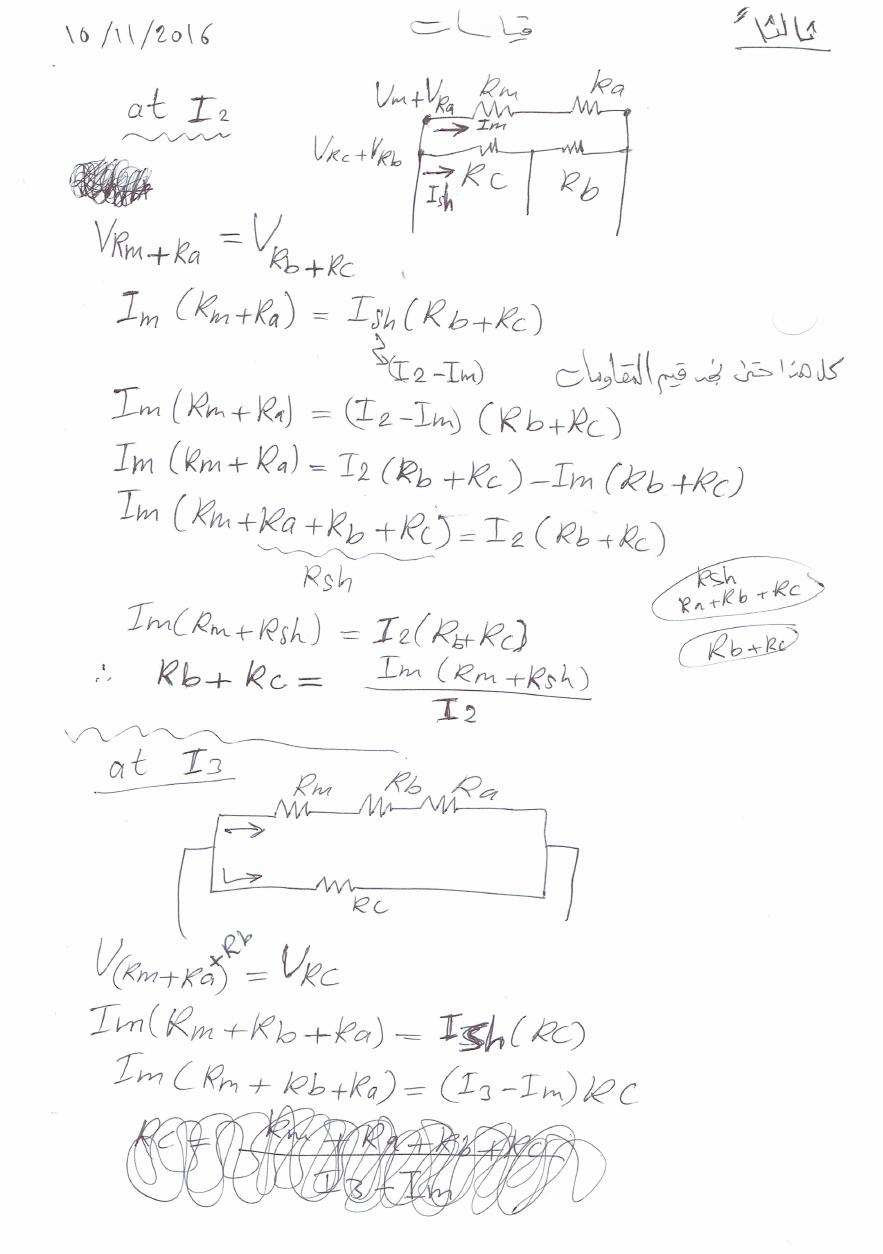 10/11/2016 قياسات ثالثاً
at I2
Vm+VRa Rm Ra
Im
VRc+VRb
Ish RC Rb
VRm+Ra = VRb+Rc
Im (Rm+Ra) = Ish (Rb+Rc)
(I2-Im) كل هذا حتى نجد قيم المقاومات
Im (Rm+Ra) = (I2-Im) (Rb+Rc)
Im (Rm+Ra) = I2 (Rb+Rc) -Im (Rb+Rc)
Im (Rm+Ra+Rb+Rc) = I2 (Rb+Rc)
Rsh
Rsh
Ra+Rb+Rc
Im(Rm+Rsh) = I2(Rb+Rc)
Rb+Rc
∴ Rb+Rc = Im (Rm+Rsh)
I2
at I3
Rm Rb Ra
RC
V(Rm+Ra)+Rb = VRC
Im(Rm+Rb+Ra) = Ish(RC)
Im(Rm+Rb+Ra) = (I3-Im)RC
RC = Rm+Ra+Rb+RC
I3-Im